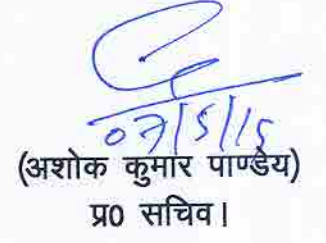 07/5/15
(अशोक कुमार पाण्डेय)
प्र0 सचिव।